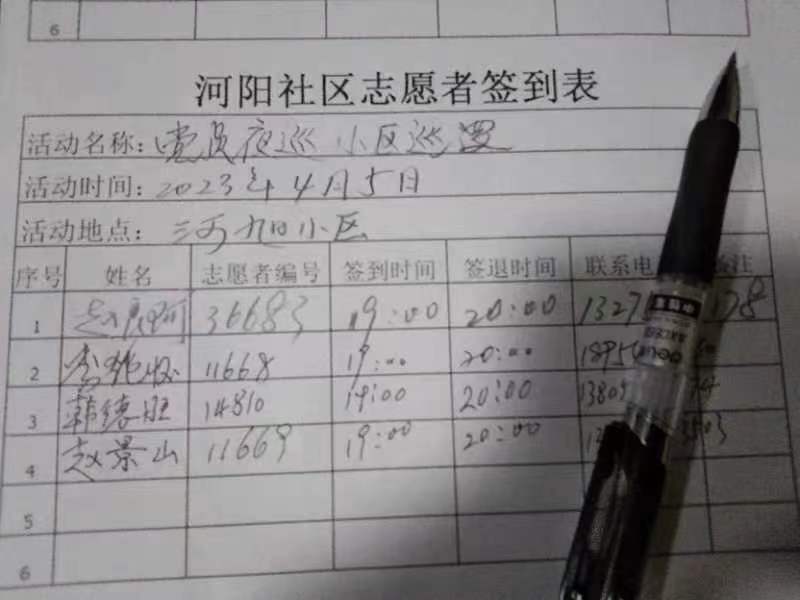 6
河阳社区志愿者签到表
活动名称：党员夜巡 小区巡逻
活动时间：2023年4月5日
活动地点：三河九口小区
序号 姓名 志愿者编号 签到时间 签退时间 联系电 注
1 36683 19:00 20:00 1327 78
2 李 11668 19:00 20:00 1895
3 韩德胜 14810 19:00 20:00 13809
4 赵景山 11669 19:00 20:00 503
5
6
deli